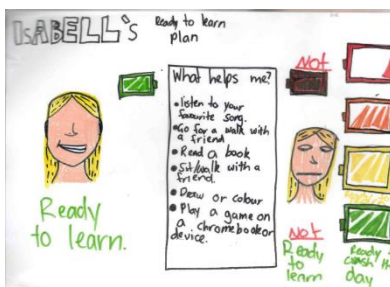 ISABELL's
Ready to learn
plan
What helps me?
• listen to your
favourite song.
• Go for a walk with
a friend
• Read a book
• Sit/walk with a
friend.
• Draw or colour
• Play a game on
a chromebook or
device.
Ready
to learn.
NOT
NOT
Ready
to
learn
Ready
crush th
day